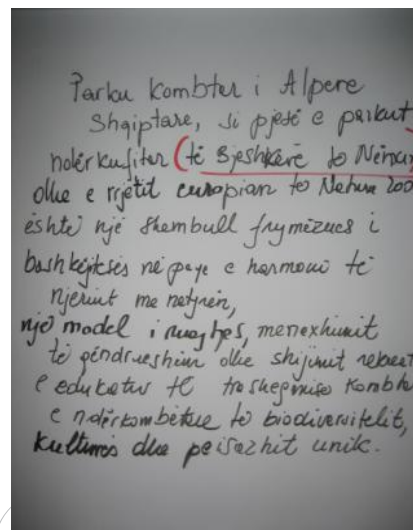 Parku Kombtar i Alpeve
Shqiptare, si pjesë e parkut
ndërkufitar (të Bjeshkëve të Nemun
dhe e rrjetit europian të Natura 200
është një shembull frymëzues i
bashkëjetesës në paqe e harmoni të
njeriut me natyrën,
një model i ruajtjes, menaxhimit
të qëndrueshëm dhe shijimit rekreat
e edukativ të trashëgimisë kombta
e ndërkombëtare të biodiversitetit,
kulturës dhe peisazhit unik.